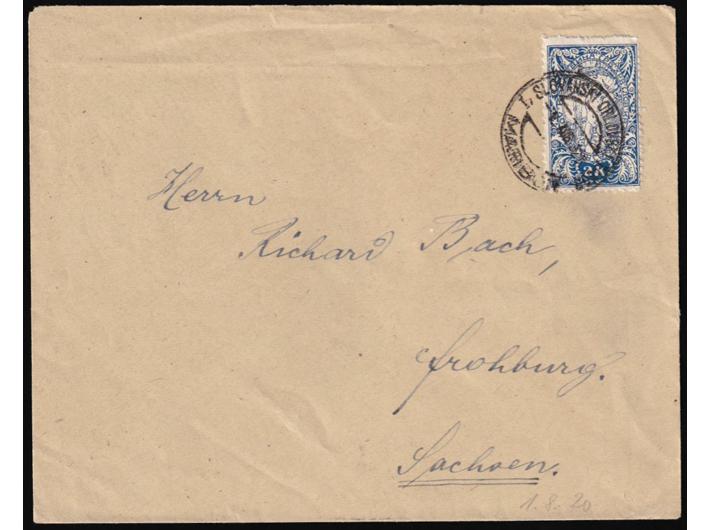 I. SLOVANSKI ORLOVSKI
MARIBOR
2K
Herrn
Richard Bach,
Frohburg.
Sachsen.
1.8.20